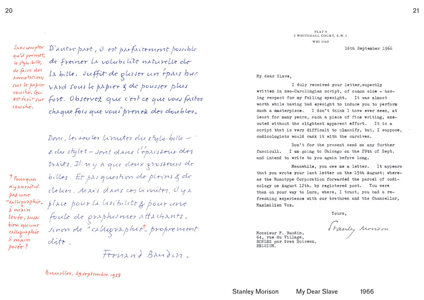 20
21
Sans compter
qu'il permet,
le style-bille,
de faire des
annotations
sur le papier
couché, qui
D'autre part, il est parfaitement possible
de freiner la volubilité naturelle de
la bille. Suffit de glisser un épais bu-
vard sous le papier & de pousser plus
fort. Observez que c'est ce que vous faites
chaque fois que vous prenez des doubles.
Donc, les seules limites du style-bille –
& du stylet – sont dans l'épaisseur des
traits. Il n'y a que deux grosseurs de
billes. Et pas question de pleins & de
déliés. Mais dans ces limites, il y a
place pour la lisibilité & pour une
foule de graphismes attachants,
sinon de "calligraphie", proprement
dite.
Fernand Baudin.
† Pourquoi
n'y aurait-il
pas une
"calligraphie"
à main
levée, aussi
bien qu'une
calligraphie
à main
posée ?
Bruxelles, 29 septembre 1958
FLAT 9
2 WHITEHALL COURT, S.W.1
16th September 1966
My dear Slave,
I duly received your letter, superbly
written in neo-Carolingian script, of course size - hav-
ing respect for my failing eyesight. It was almost
worth while having bad eyesight to induce you to perform
such a masterpiece. I don't think I have ever seen, at
least for many years, such a piece of fine writing, exe-
cuted without the slightest apparent effort. It is a
script that is very difficult to classify, but, I suppose,
codicologists would rank it with the cursives.
Don't for the present send me any further
fasciculi. I am going to Chicago on the 29th of Sept.
and intend to write to you again before long.
Meanwhile, you owe me a letter. It appears
that you wrote your last letter on the 15th August; where-
as the Monotype Corporation forwarded the parcel of codi-
cology on August 12th, by registered post. You were
then on your way to Lucs, where, I trust, you had a re-
freshing experience with our brethren and the Chancellor,
Maximilien Vox.
Yours,
Stanley Morison
Monsieur F. Baudin,
64, rue du Village,
BELGIUM.
Stanley Morison
My Dear Slave
1966